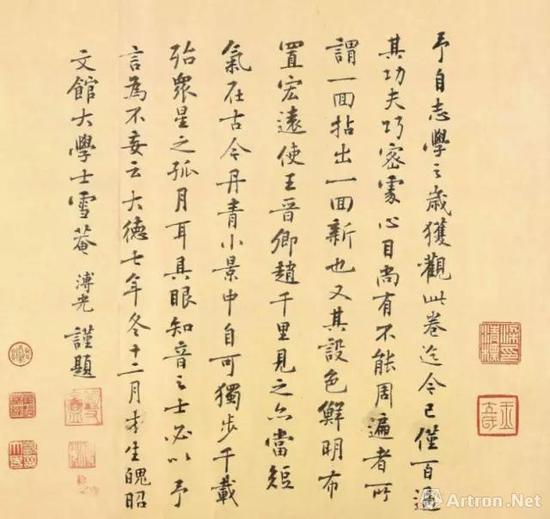 予自志學之歲獲觀此卷迄今已僅百過
其功夫巧密處心目尚有不能周遍者所
謂一回拈出一回新也又其設色鮮明布
置宏遠使王晉卿趙千里見之亦當短
氣在古今丹青小景中自可獨步千載
殆衆星之孤月耳具眼知音之士必以予
言為不妄云大德七年冬十二月才生魄昭
文館大學士雪菴溥光謹題
Artron.Net